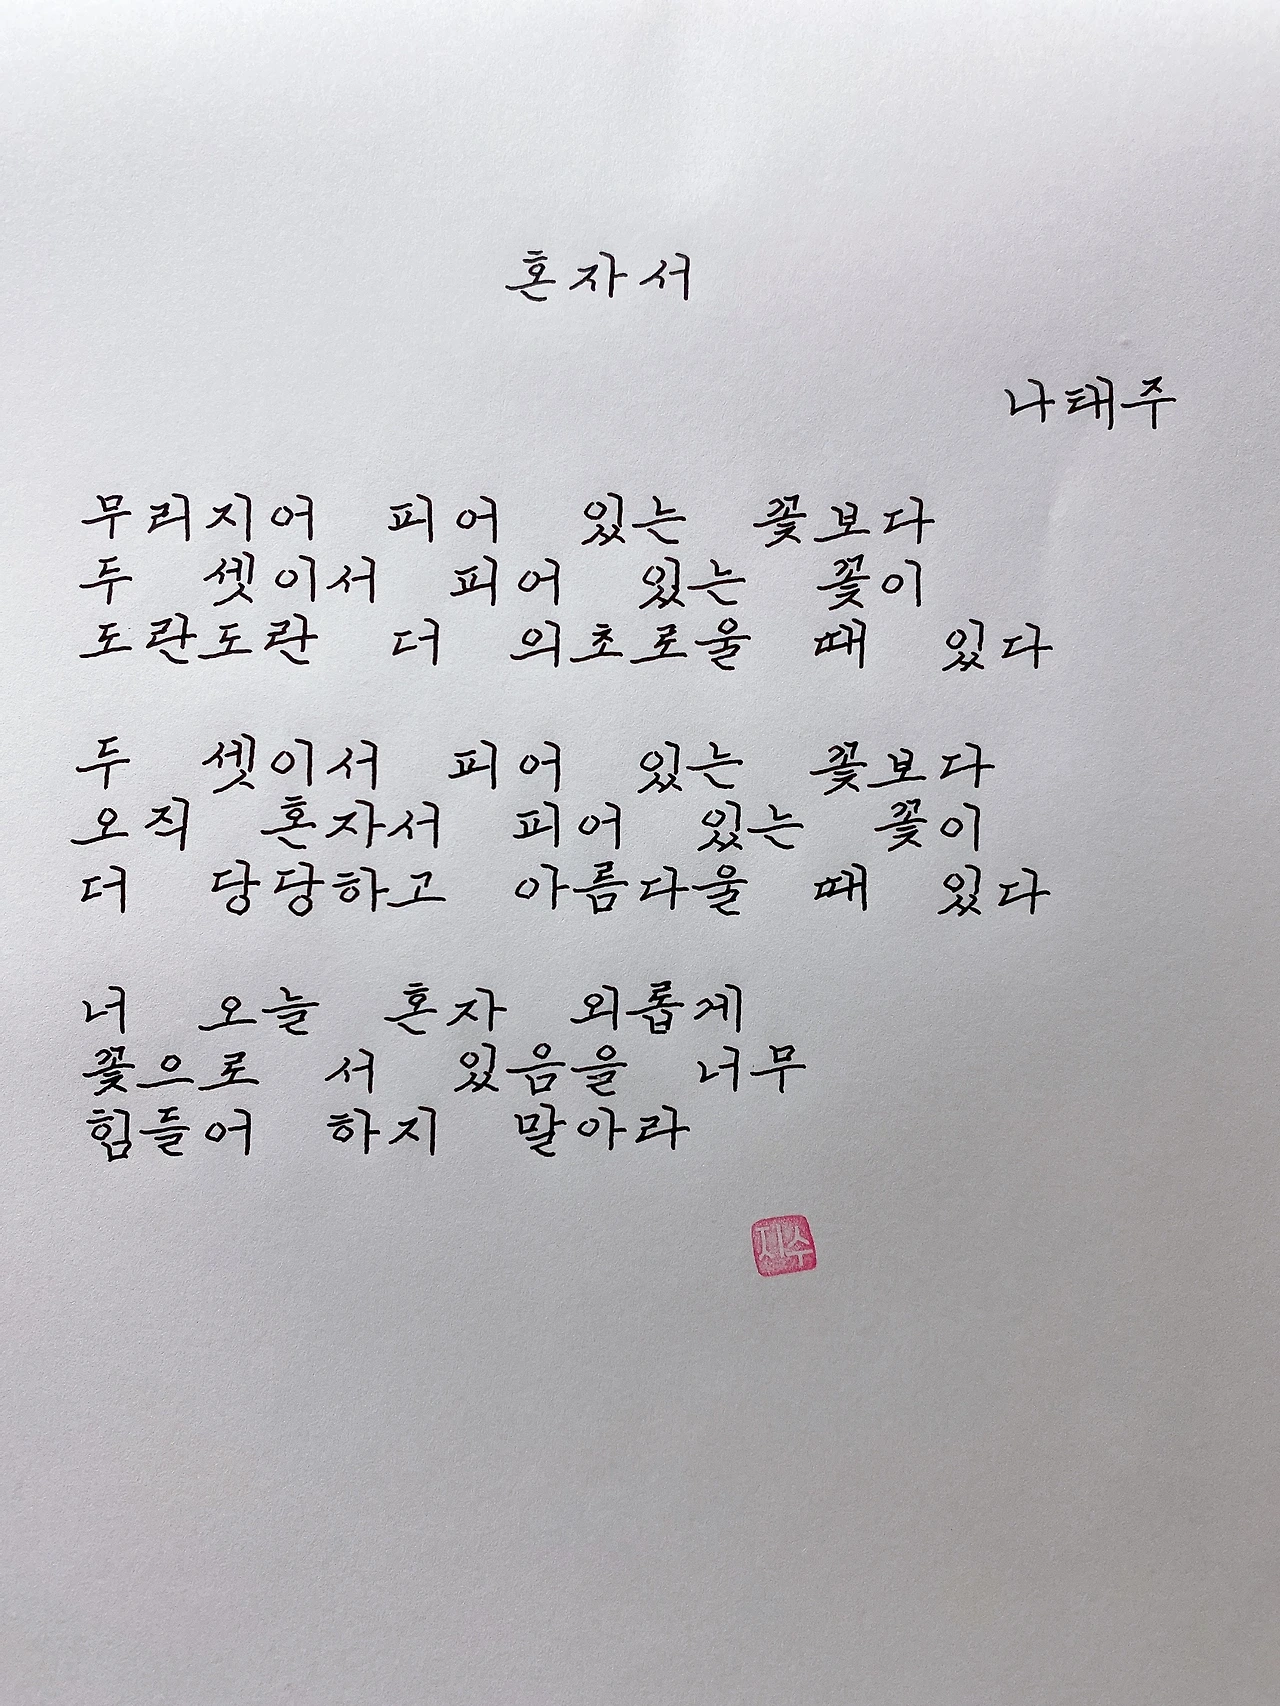 혼자서
나태주
무리지어 피어 있는 꽃보다
두 셋이서 피어 있는 꽃이
도란도란 더 의초로울 때 있다
두 셋이서 피어 있는 꽃보다
오직 혼자서 피어 있는 꽃이
더 당당하고 아름다울 때 있다
너 오늘 혼자 외롭게
꽃으로 서 있음을 너무
힘들어 하지 말아라
지수